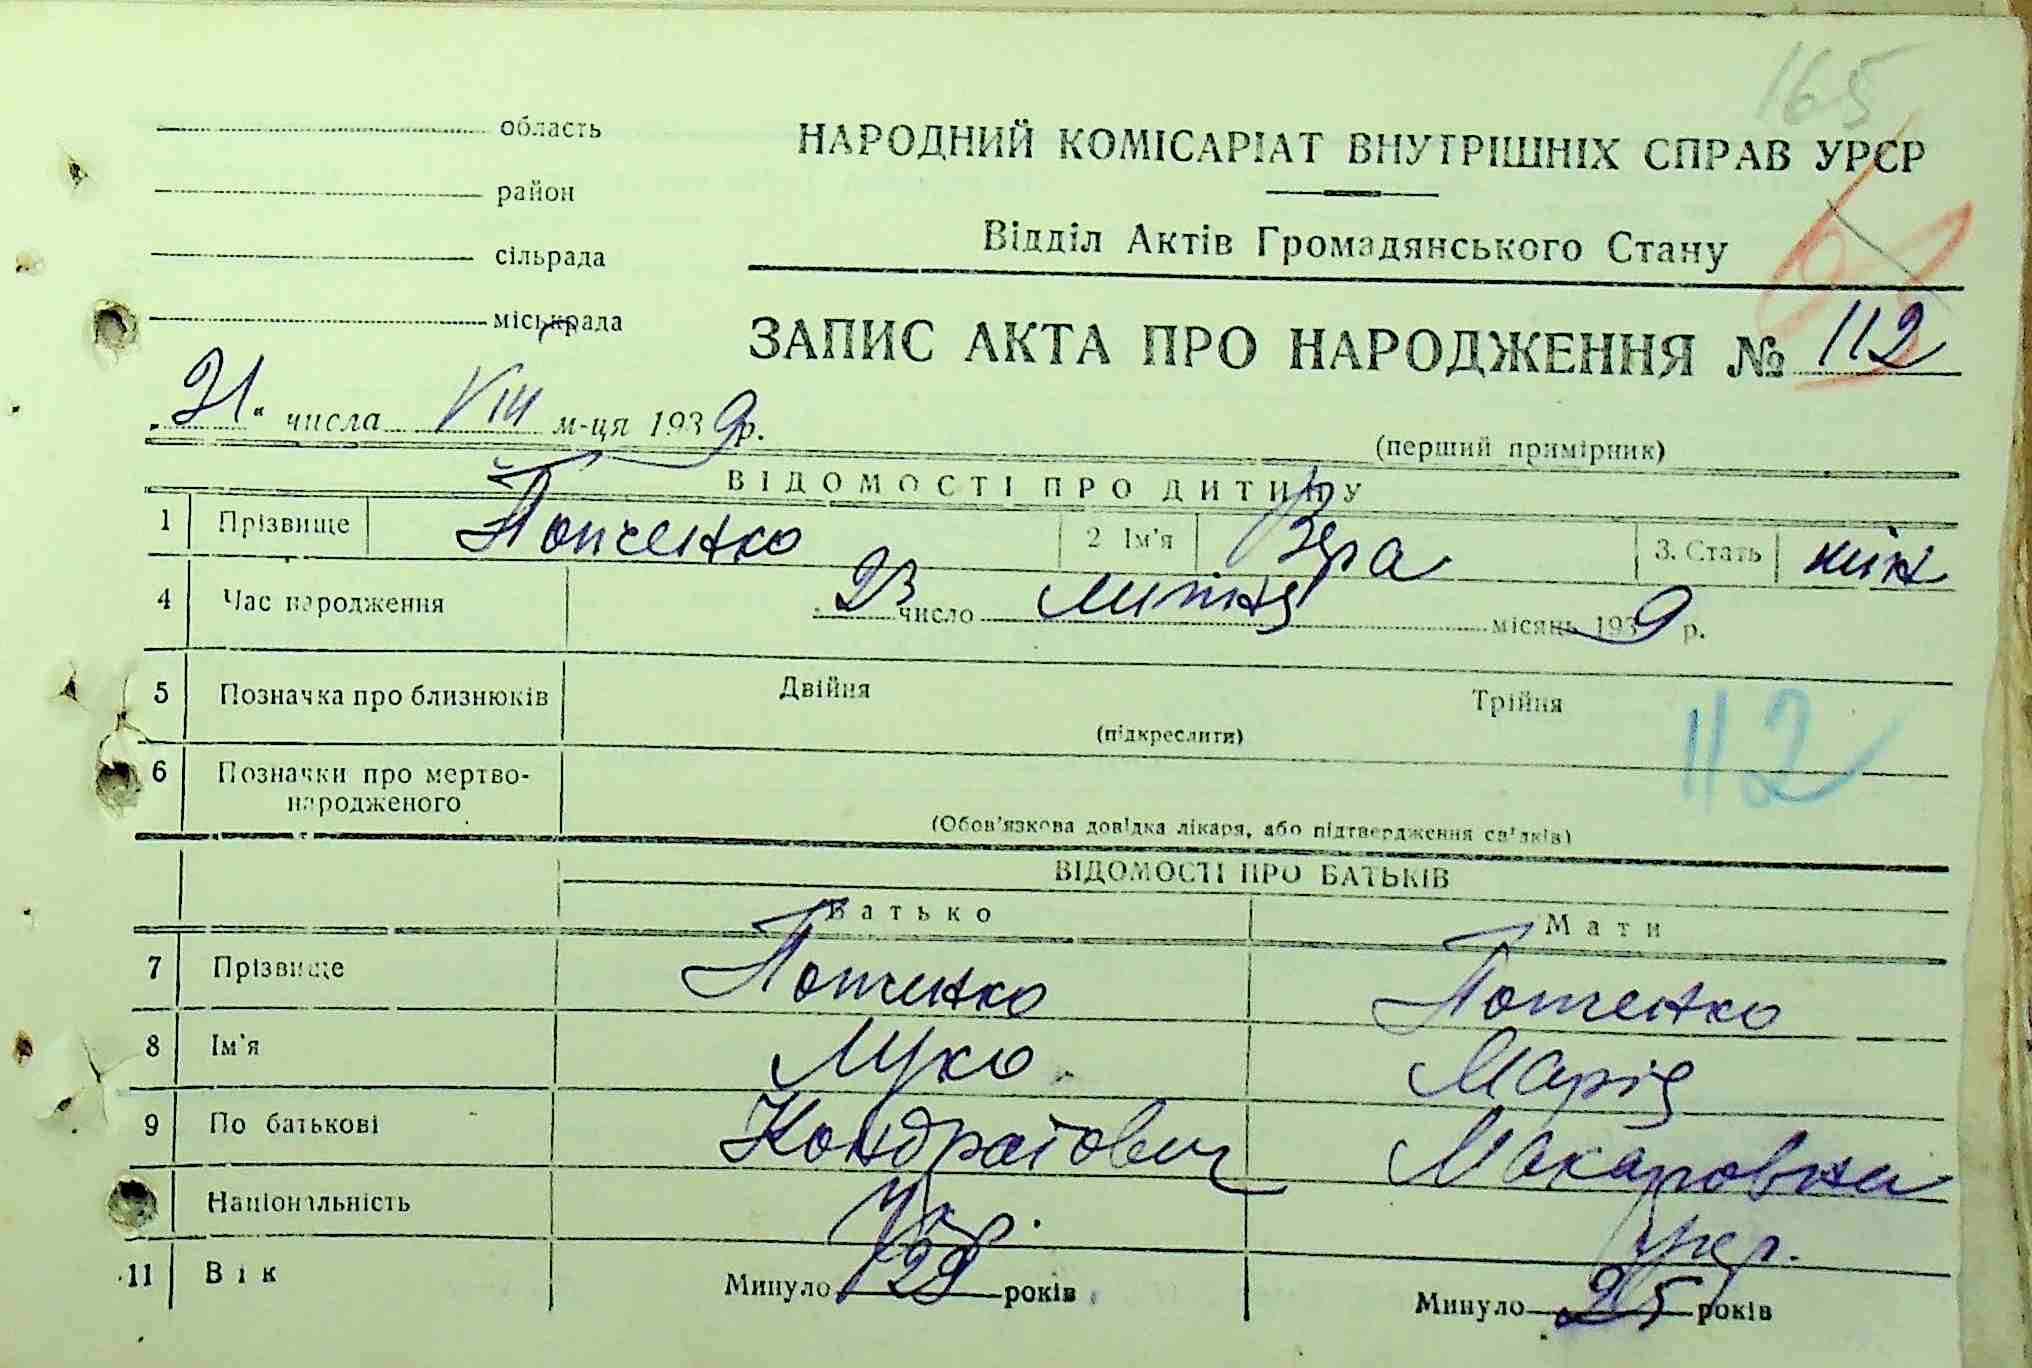 165
область
район
сільрада
міськрада
НАРОДНИЙ КОМІСАРІАТ ВНУТРІШНІХ СПРАВ УРСР
Відділ Актів Громадянського Стану
ЗАПИС АКТА ПРО НАРОДЖЕННЯ № 112
"21" числа VIII м-ця 1939 р.
(перший примірник)
ВІДОМОСТІ ПРО ДИТИНУ
1 Прізвище 2 Ім'я Вера 3. Стать жін
4 Час народження 23 число липня місяць 1939 р.
5 Позначка про близнюків Двійня Трійня
(підкреслити)
112
6 Позначки про мертво-
народженого
(Обов'язкова довідка лікаря, або підтвердження свідків)
ВІДОМОСТІ ПРО БАТЬКІВ
Батько Мати
7 Прізвище
8 Ім'я Луко Марія
9 По батькові Кондратович Макаровна
Національність Укр. укр.
11 Вік Минуло 29 років Минуло 25 років